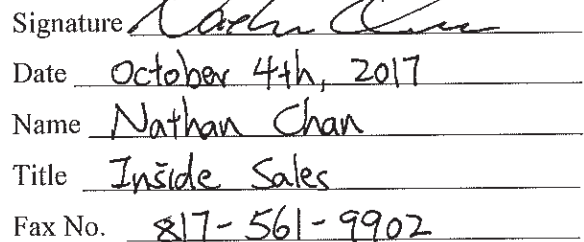 Signature Nathan Chan
Date October 4th, 2017
Name Nathan Chan
Title Inside Sales
Fax No. 817-561-9902